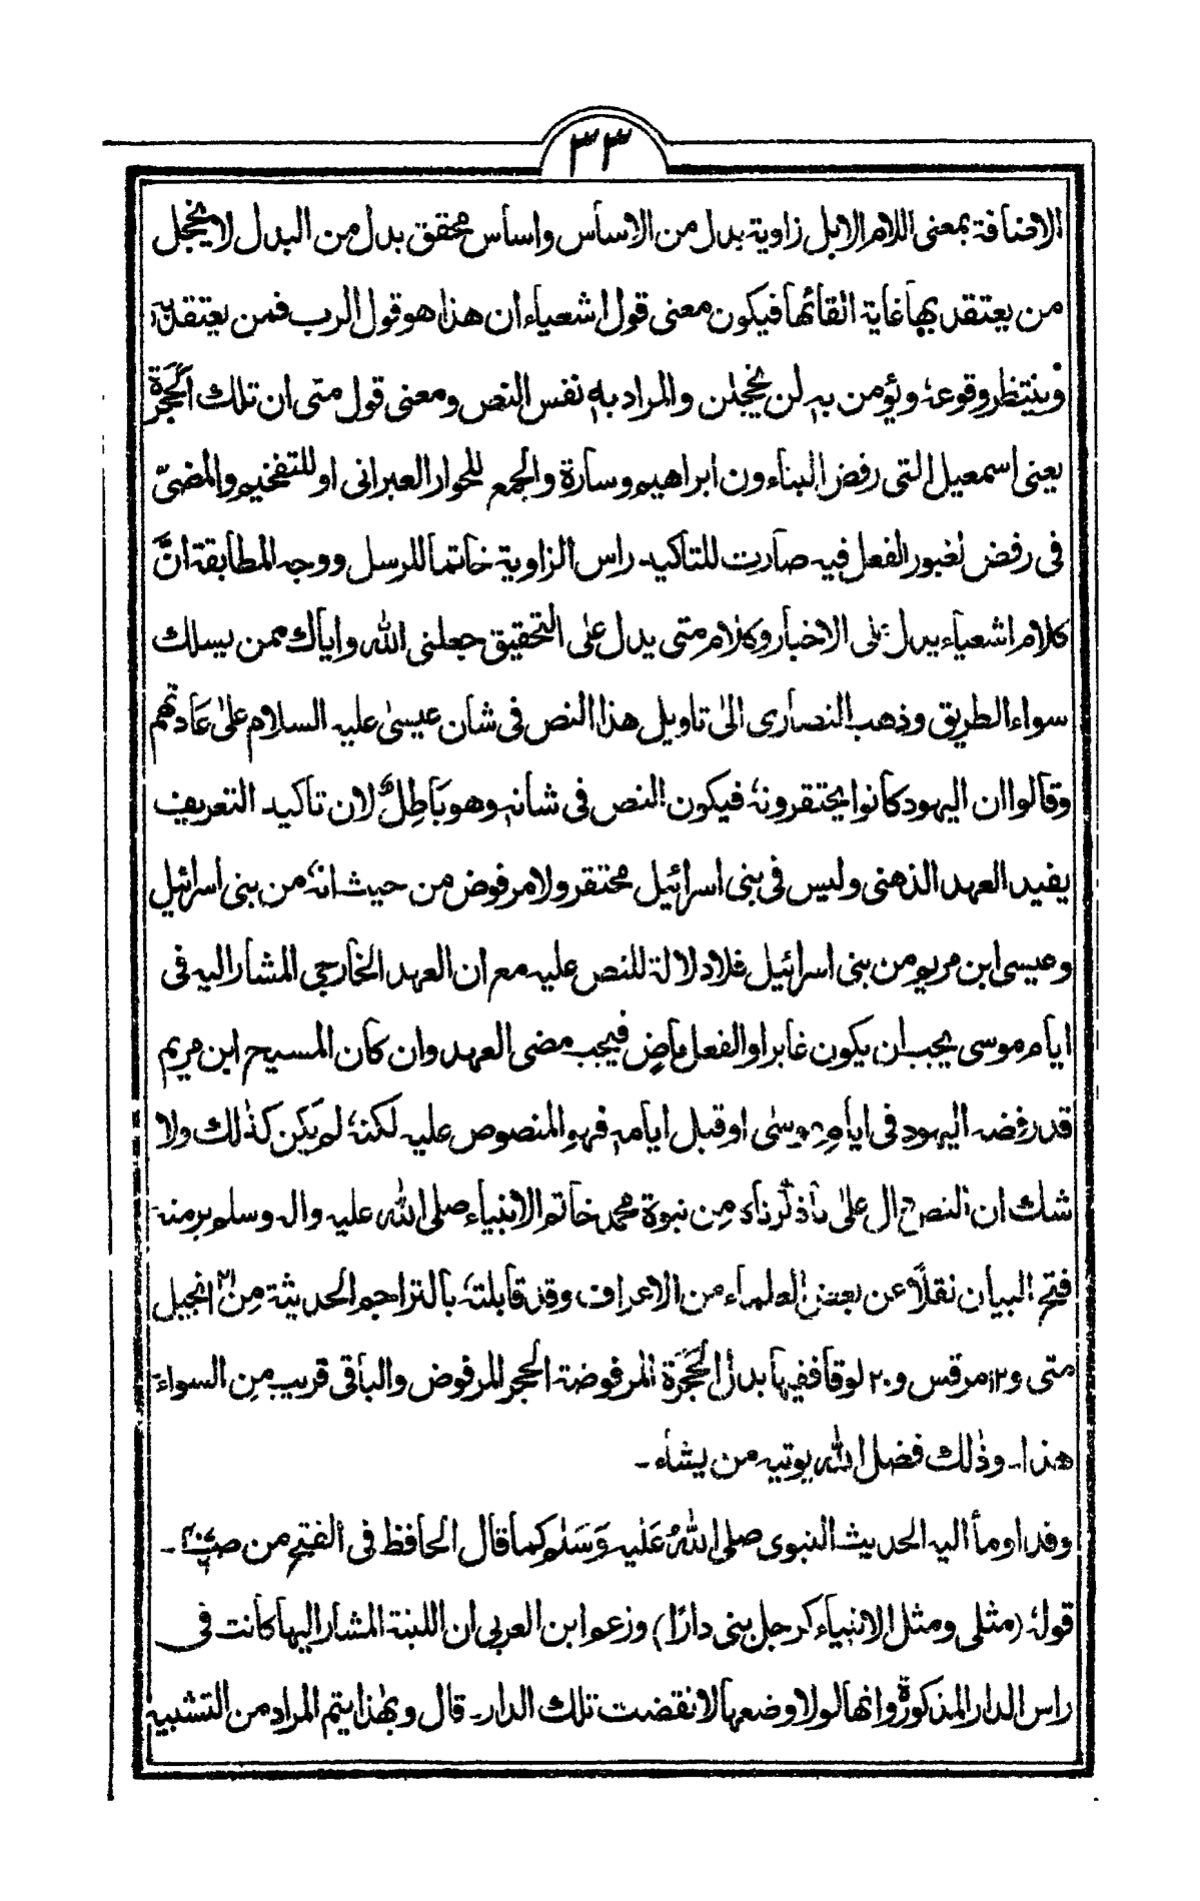 ٣٣
الاضافة بمعنى اللام الابل زاوية بدل من الاساس واساس محقق بدل من البدل لا يخجل
من يعتقد بها غاية اتقائها فيكون معنى قول اشعياء ان هذا هو قول الرب فمن يعتقد به
وينتظر وقوعه ويؤمن به لن يخجلن والمراد به نفس النص ومعنى قول متى ان تلك الحجرة
يعنى اسمعيل التى رفض البناءون ابراهيم وسارة والجمع للحوار العبرانى او للتفخيم والمضىّ
فى رفض لغبور الفعل فيه صارت للتاكيد راس الزاوية خاتما للرسل ووجه المطابقة انَّ
كلام اشعياء يدل على الاخبار وكلام متى يدل على التحقيق جعلنى الله واياك ممن يسلك
سواء الطريق وذهب النصارى الىٰ تاويل هذا النص فى شان عيسىٰ عليه السلام علىٰ عادتهم
وقالوا ان اليهود كانوا يحتقرونه فيكون النص فى شانه وهو بَاطِلٌ لان تاكيد التعريف
يفيد العهد الذهنى وليس فى بنى اسرائيل محتقر ولا مرفوض من حيث انه من بنى اسرائيل
وعيسى ابن مريم من بنى اسرائيل فلا دلالة للنص عليه مع ان العهد الخارجى المشار اليه فى
ايام موسى يجب ان يكون غابرا والفعل ماضٍ فيجب مضى العهد وان كان المسيح ابن مريم
قد رفضه اليهود فى ايام موسىٰ او قبل ايامه فهو المنصوص عليه لكنه لم يكن كذٰلك ولا
شك ان النص دال علىٰ ما ذكرناه مِن نبوة محمد خاتم الانبياء صلى الله عليه واله وسلم برمته
فتح البيان نقلًا عن بعض العلماء من الاعراف وقد قابلته بالتراجم الحديثة مِن ٢١ انجيل
متى و١٢ مرقس و٢٠ لوقا ففيها بدل الحَجَرَة المرفوضة الحجر المرفوض والباقى قريب مِن السواء
هذا۔ وذٰلك فضل الله يوتيه من يشاء ۔
وقد اومأ اليه الحديث النبوى صلى اللهُ عَلَيه وَسَلم كما قال الحافظ فى الفتح من ۔
قوله (مثلى ومثل الانبياء كرجل بنى دارًا) وزعم ابن العربى ان اللبنة المشار اليها كانت فى
راس الدار المذكورة وانها لولا وضعها لانقضت تلك الدار۔ قال وبهٰذا يتم المراد من التشبيه